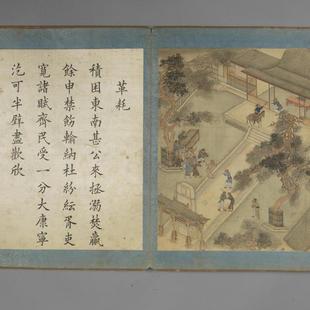 革耗
積困東南甚公來拯溺焚贏
餘申禁飭輸納杜紛紜胥吏
寬諸賦齊民受一分大康寧
汔可半壁盡歡欣